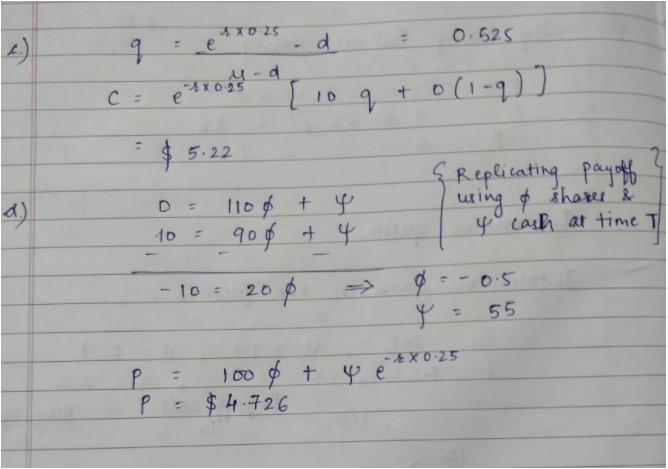 c.) q = e^{r×0.25} - d / u - d = 0.525
C = e^{-r×0.25} [ 10 q + 0 (1-q) ]
= $ 5.22
d.) 0 = 110 φ + ψ
10 = 90 φ + ψ
- - -
-10 = 20 φ ⇒ φ = - 0.5
ψ = 55
{ Replicating payoff
using φ shares &
ψ cash at time T }
P = 100 φ + ψ e^{-r×0.25}
P = $ 4.726